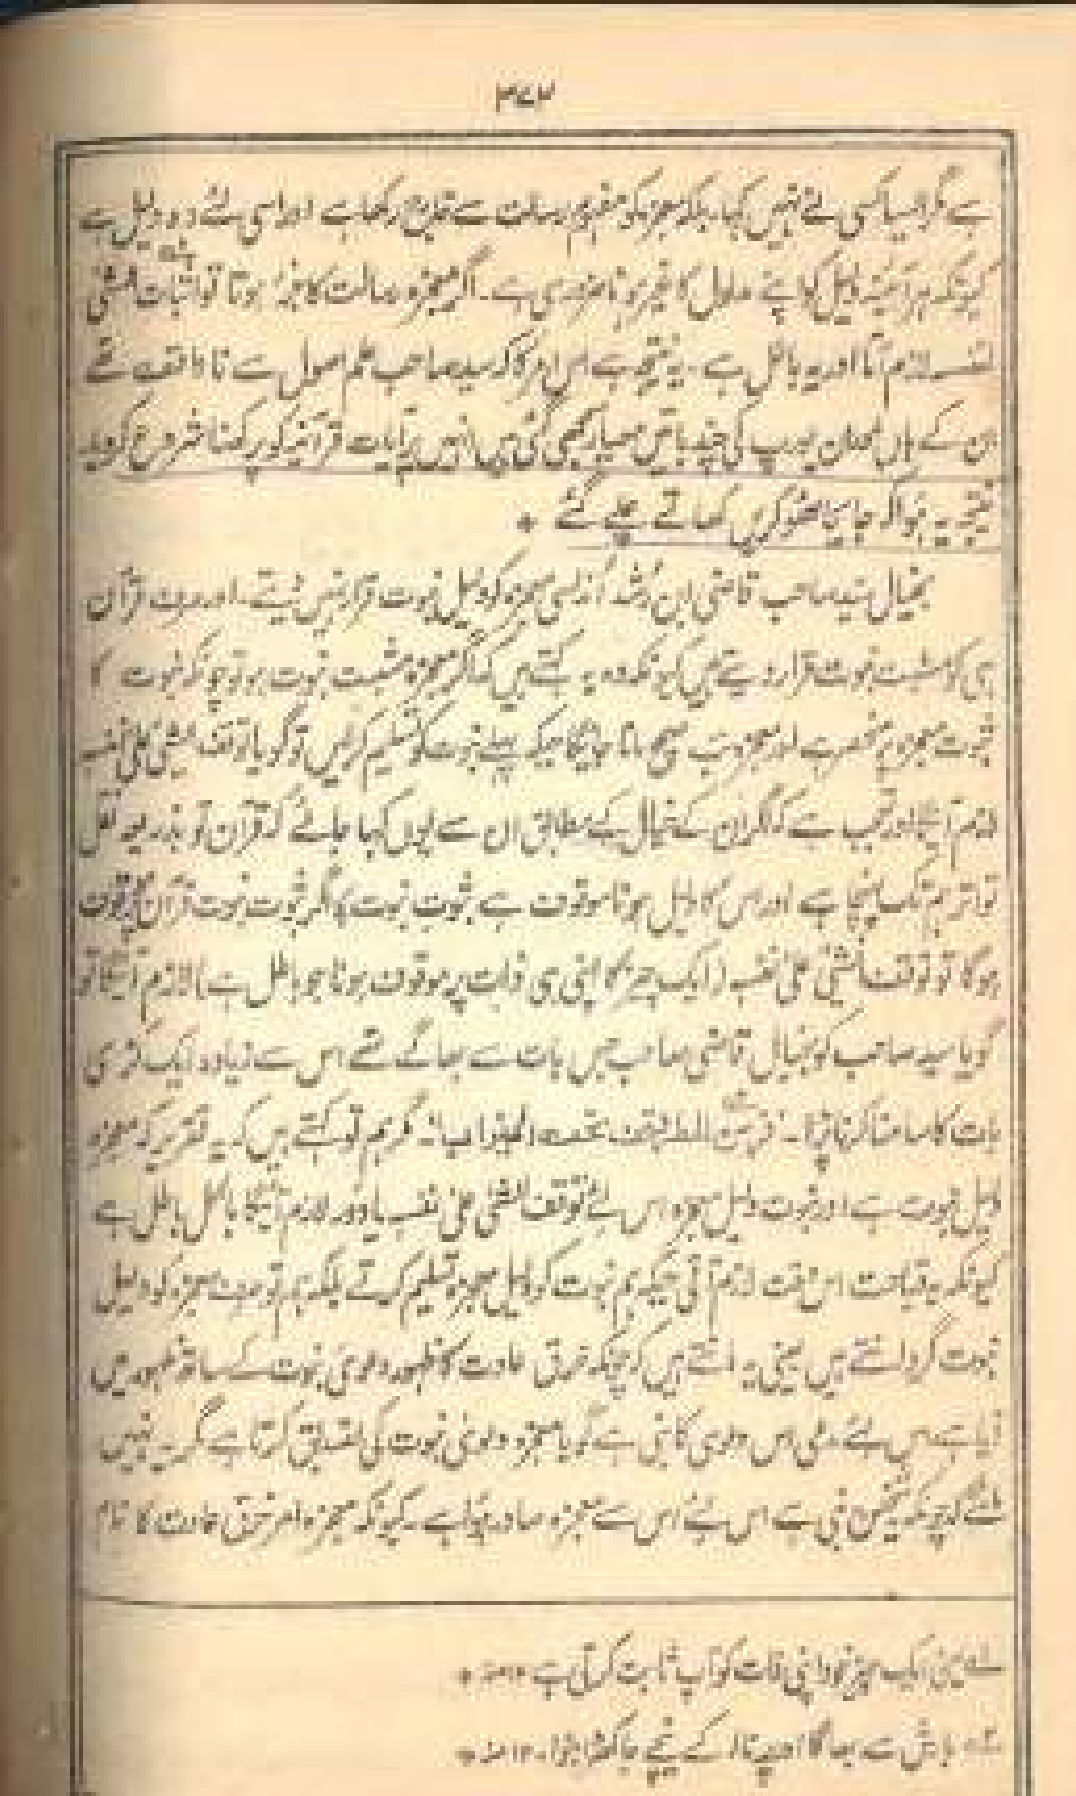 ۳۷۲
ہے مگر ایسا کسی نے نہیں کہا۔ بلکہ معجزہ کو مفہوم رسالت سے خارج رکھا ہے اور اسی لئے وہ دلیل ہے
کیونکہ ہر آئینہ دلیل کو اپنے مدلول کا غیر ہونا ضروری ہے۔ اگر معجزہ رسالت کا جزء ہوتا تو اثبات الشئی
لنفسہ لازم آتا اور یہ باطل ہے۔ یہ نتیجہ ہے اس امر کا کہ سید صاحب علم اصول سے ناواقف تھے
ان کے ہاں یورپ کی چند باتیں معیار سمجھی گئی ہیں انہیں پر آیات قرآنیہ کو پرکھنا شروع کر دیا۔
نتیجہ یہ ہوا کہ جا بجا ٹھوکریں کھاتے چلے گئے *
بخیال سید صاحب قاضی ابن رشد اندلسی معجزہ کو دلیل نبوت قرار نہیں دیتے۔ اور صرف قرآن
ہی کو مثبت نبوت قرار دیتے ہیں کیونکہ وہ یہ کہتے ہیں کہ اگر معجزہ مثبت نبوت ہو تو چونکہ نبوت کا
ثبوت معجزہ پر منحصر ہے اور معجزہ تب صحیح مانا جائیگا جبکہ پہلے نبوت کو تسلیم کر لیں تو گویا توقف الشئی علی نفسہ
لازم آئیگا اور تعجب ہے کہ اگر ان کے خیال کے مطابق ان سے یوں کہا جائے کہ قرآن تو بذریعہ نقل
تواتر ہم تک پہنچا ہے اور اس کا دلیل ہونا موقوف ہے ثبوت نبوت پر اگر ثبوت نبوت قرآن پر موقوف
ہوگا تو توقف الشئی علی نفسہ (ایک چیز کا اپنی ہی ذات پر موقوف ہونا جو باطل ہے) لازم آئیگا تو
گویا سید صاحب کو بخیال قاضی صاحب جس بات سے بھاگے تھے اس سے زیادہ ایک کڑی
بات کا سامنا کرنا پڑا۔ فر من المطر وقف تحت المیزاب۔ مگر ہم تو کہتے ہیں کہ یہ تقریر کہ معجزہ
دلیل نبوت ہے اور نبوت دلیل معجزہ اس لئے توقف الشئی علی نفسہ یا دور لازم آئیگا بالکل باطل ہے
کیونکہ یہ قباحت اس وقت لازم آتی جبکہ ہم نبوت کو دلیل معجزہ تسلیم کرتے بلکہ ہم تو صرف معجزہ کو دلیل
نبوت گردانتے ہیں یعنی یہ مانتے ہیں کہ چونکہ خرق عادت کا ظہور دعویٰ نبوت کے ساتھ ظہور میں
آیا ہے اس لئے مدعی اس دعویٰ کا نبی ہے گویا معجزہ دعویٰ نبوت کی تصدیق کرتا ہے مگر یہ نہیں
مانتے کہ چونکہ یہ شخص نبی ہے اس لئے اس سے معجزہ صادر ہوا ہے۔ کیونکہ معجزہ امر خرق عادت کا نام
لہ یعنی ایک چیز خود اپنی ذات کو آپ ثابت کرتی ہے ۱۲ منہ *
بارش سے بھاگا اور پرنالہ کے نیچے جا کھڑا ہوا۔ ۱۲ منہ *